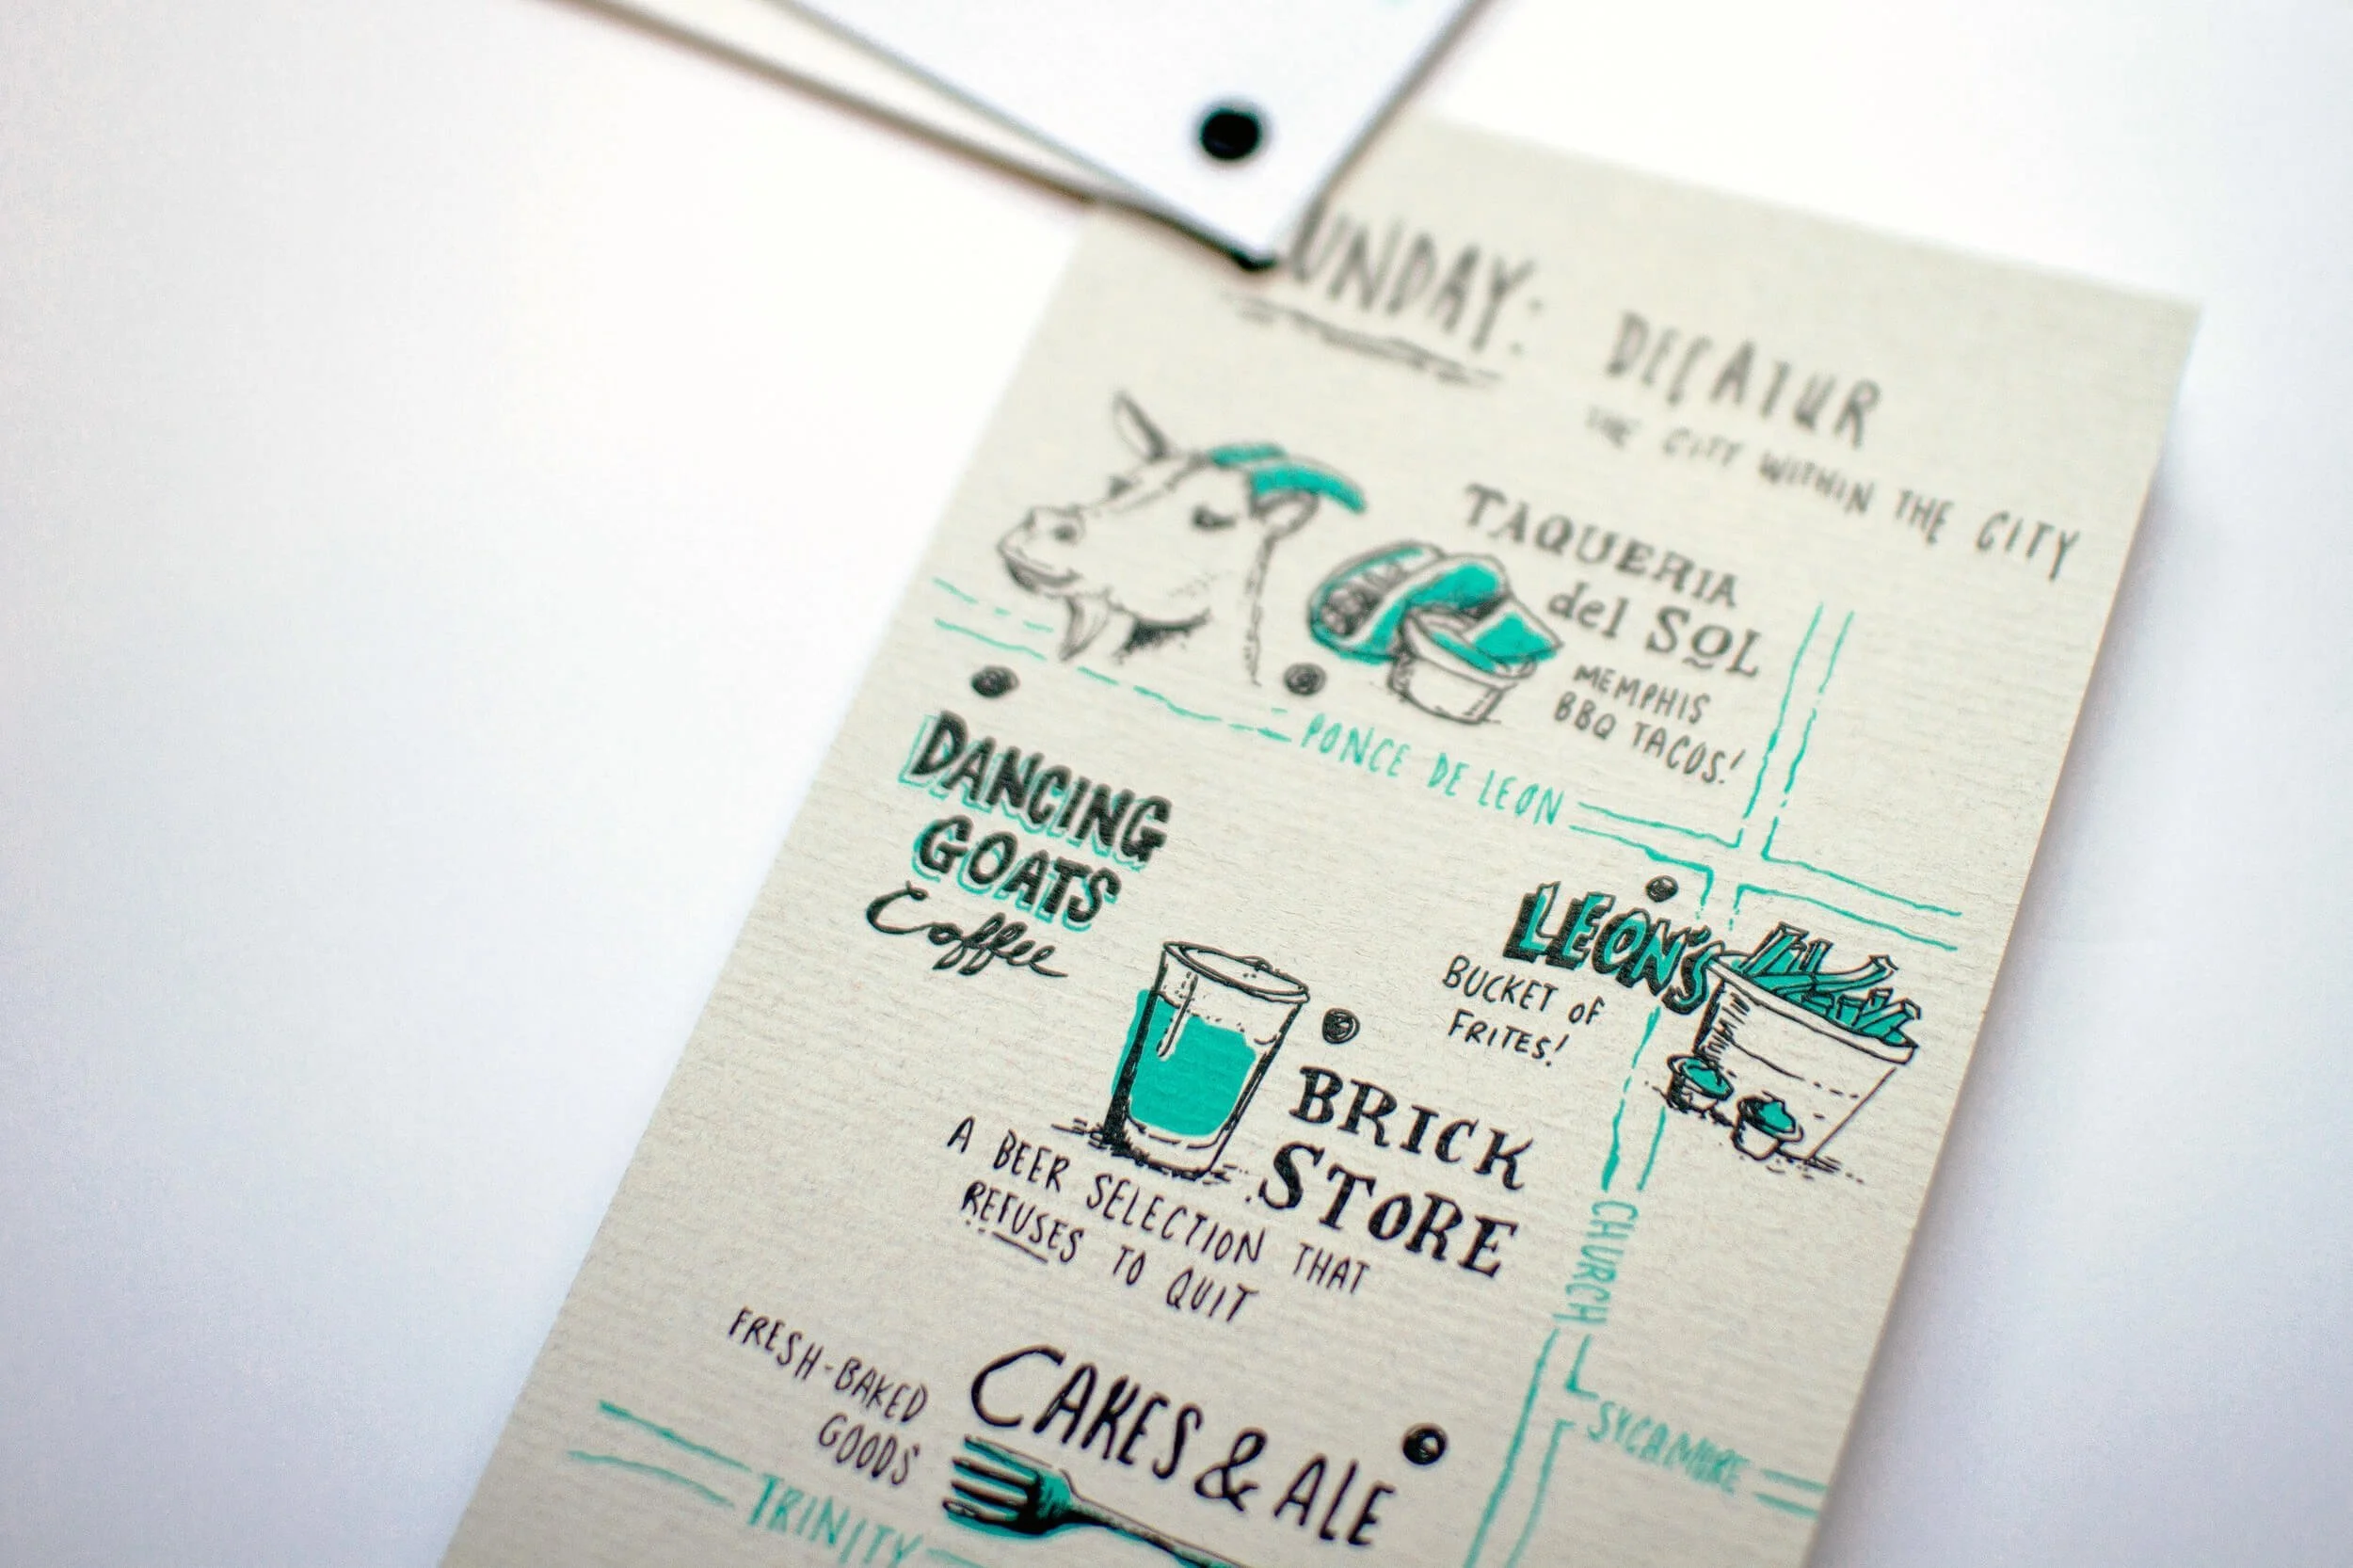 UNDAY: DECATUR
THE CITY WITHIN THE CITY
TAQUERIA
del SOL
MEMPHIS
BBQ TACOS!
PONCE DE LEON
DANCING
GOATS
Coffee
LEON'S
BUCKET OF
FRITES!
BRICK
STORE
A BEER SELECTION THAT
REFUSES TO QUIT
CHURCH
FRESH-BAKED
GOODS
CAKES & ALE
SYCAMORE
TRINITY